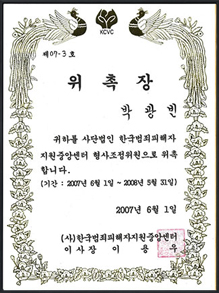 KCVC
제07-3호
위 촉 장
박 광 빈
귀하를 사단법인 한국범죄피해자
지원중앙센터 형사조정위원으로 위촉
합니다.
(기간 : 2007년 6월 1일 ~ 2008년 5월 31일)
2007년 6월 1일
(사)한국범죄피해자지원중앙센터
이사장 이 용 우